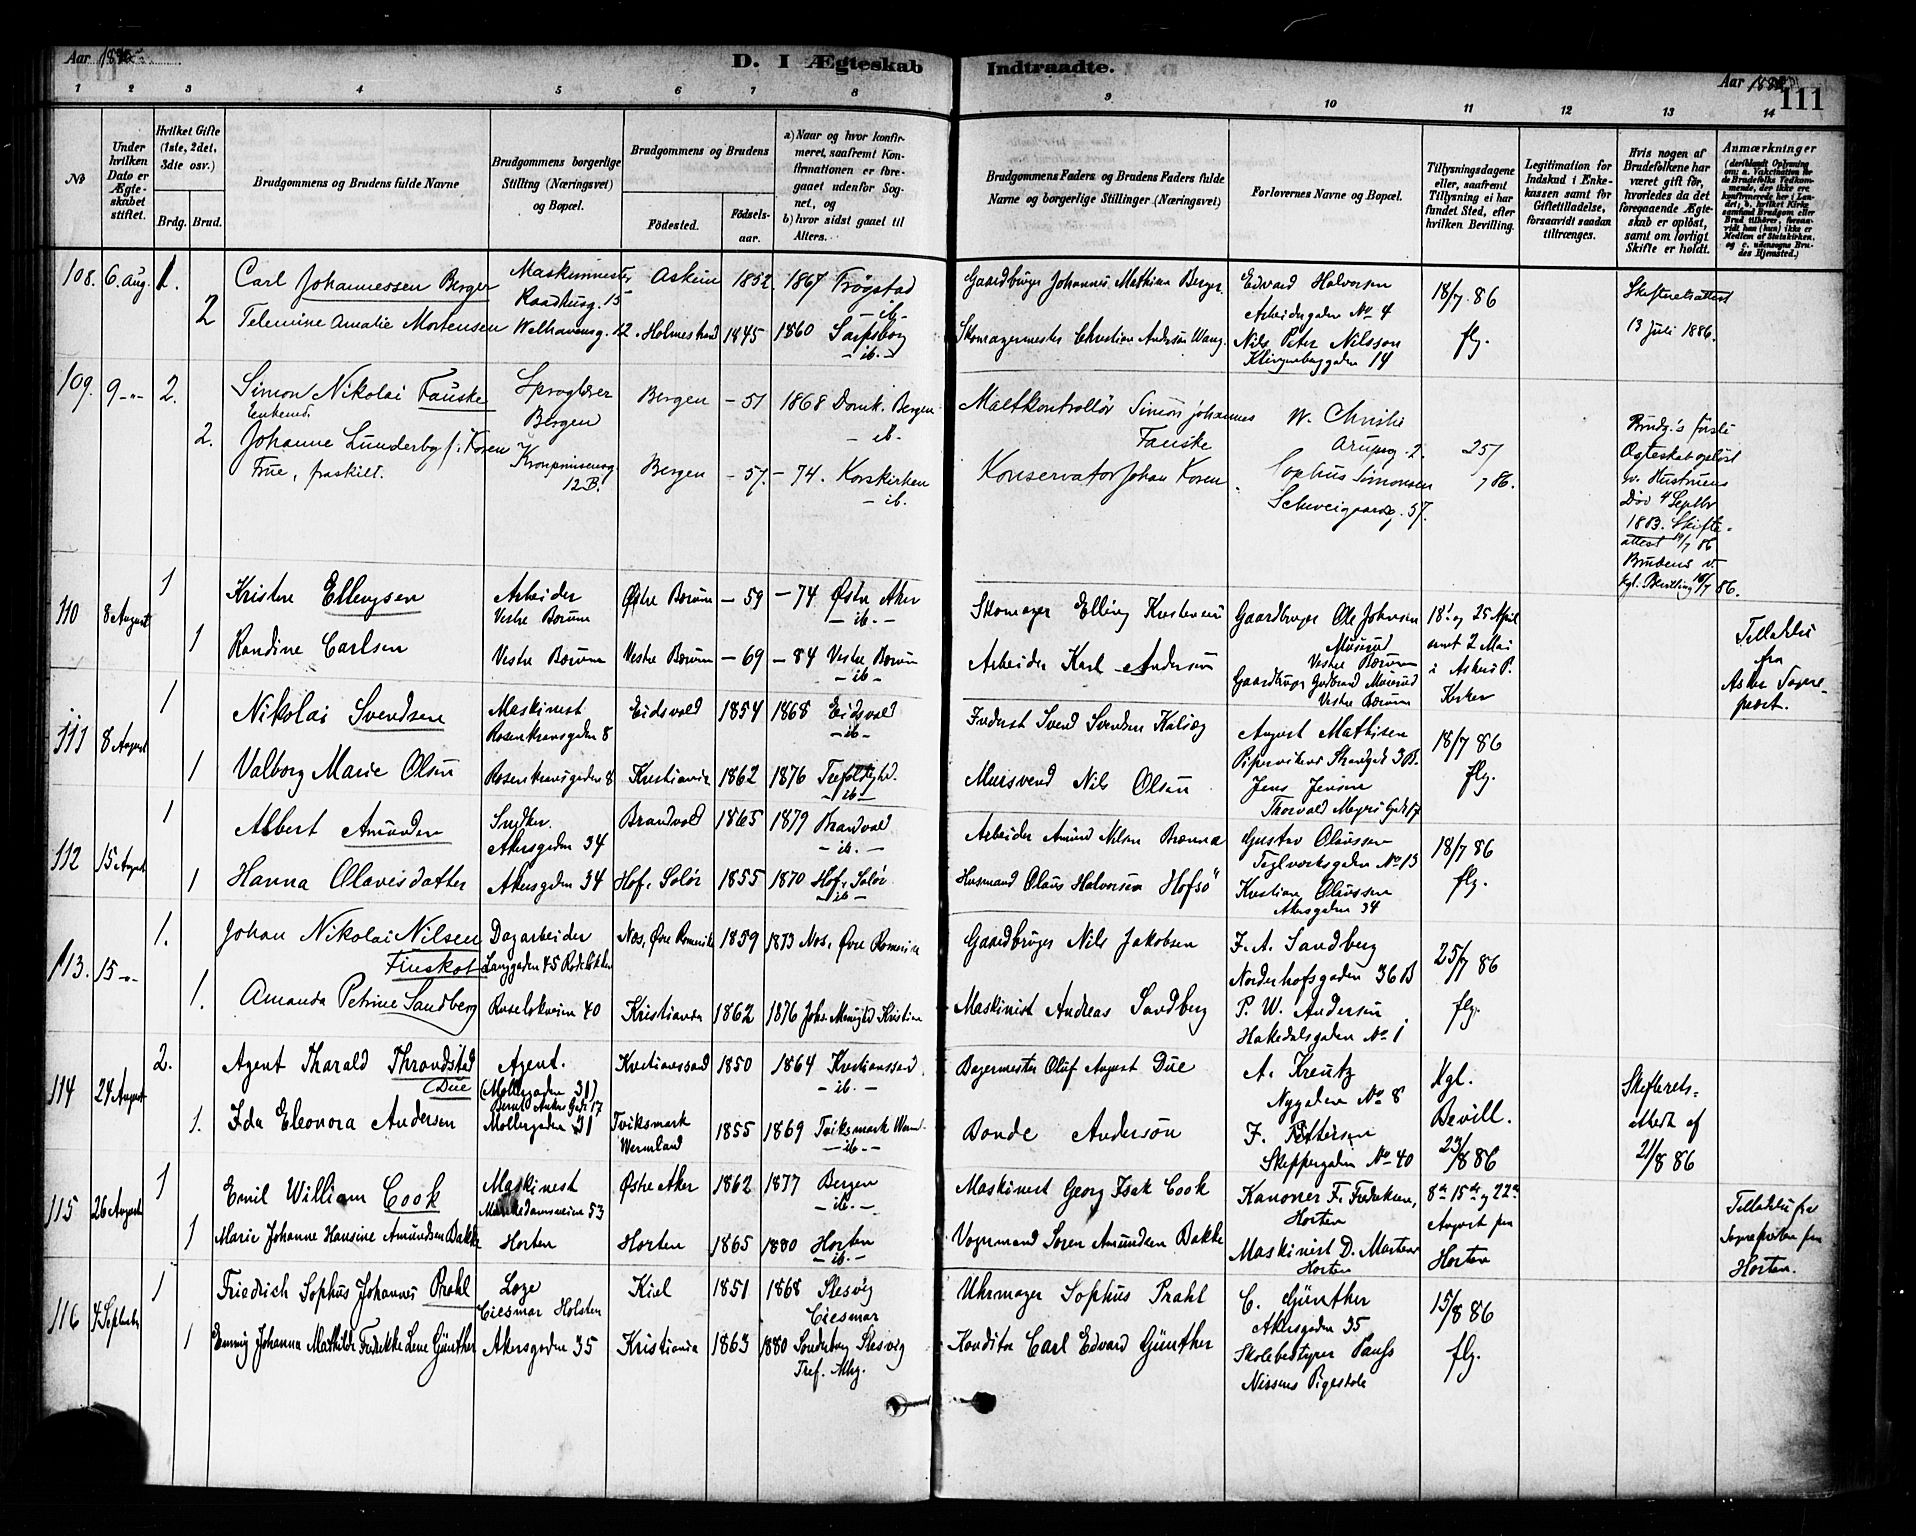 Aar 1886.
D. I Ægteskab Indtraadte.
Aar 1886
111
1 2 3 4 5 6 7 8 9 10 11 12 13 14
No
Under hvilken Dato er Ægteskabet stiftet.
Hvilket Gifte (1ste, 2det, 3die osv.)
Brdg. Brud.
Brudgommens og Brudens fulde Navne
Brudgommens borgerlige Stilling (Næringsvei) og Bopæl.
Brudgommens og Brudens
Fødested. Fødsels-aar.
a) Naar og hvor konfirmeret, saafremt Konfirmationen er foregaaet udenfor Sognet, og
b) hvor sidst gaaet til Alters.
Brudgommens Faders og Brudens Faders fulde Navne og borgerlige Stillinger (Næringsvei)
Forlovernes Navne og Bopæl.
Tillysningsdagene eller, saafremt Tillysning ei har fundet Sted, efter hvilken Bevilling.
Legitimation for Indskud i Enkekassen samt for Giftetilladelse, forsaavidt saadan tiltrænges.
Hvis nogen af Brudefolkene har været gift før, hvorledes da det foregaaende Ægteskab er opløst, samt om lovligt Skifte er holdt.
Anmærkninger
108. 6. Aug. 1. Carl Johannessen Berger Maskinmester Raadhusg. 15 Askim 1852 1867 Trøgstad - ib - Gaardbruger Johannes Mathias Berger Edvard Halvorsen Arbeidergaden No 4 18/7 86 Skifteretsattest
2 Telemine Amalie Mortensen Welhavensg. 12 Holmestrand 1845 1860 Sarpsborg - ib. - Skomagermester Christian Andersen Wang. Nils Peter Nilsson Klingenberggaden 14 flg. 13 Juli 1886.
109. 9 -"- 2. Simon Nikolai Fauske Enkemd. Sproglærer Bergen Bergen - 51 1868 Domk. Bergen - ib. Maltkontrollør Simon Johannes Fauske W. Christie Arupsg. 2. 25/7 86. Brudg.'s første Ægteskab opløst v. Hustruens Død 4 Septbr 1883. Skifteattest 19/7 86
2. Johanne Lunderby f. Koren Frue, fraskilt. Kronprinsensg. 12 B. Bergen - 57. - 74. Korskirken - ib. Konservator Johan Koren Sophus Simonsen Schweigaardsg. 57. Brudens v. kgl. Bevilling 16/7 86.
110 8 August 1 Kristen Ellingsen Arbeider Vestre Bærum Østre Bærum - 59 - 74 Østre Aker - ib. - Skomager Elling Kristensen Gaardbruger Ole Johnsen Vestre Bærum 18' og 25 April samt 2 Mai i Asker P. Kirker Tilladelse fra Asker Sogneprest.
1 Randine Carlsen Vestre Bærum Vestre Bærum - 69 - 84 Vestre Bærum - ib - Arbeider Karl Andersen Gaardbruger Gudbrand Vestre Bærum
111 8 August 1 Nikolai Svendsen Maskinist Rosenkransgaden 8 Eidsvold 1854 1868 Eidsvold - ib - Inderst Svend Svendsen August Mathisen Pipervikens Strandgd. 3 B. 18/7 86
1 Valborg Marie Olsen Rosenkransgaden 8 Kristiania 1862 1876 Trefoldighd. - ib - Mursvend Nils Olsen Jens Jensen Thorvald Meyers Gd. 17 flg.
112 15 August 1 Albert Amundsen Snedker Akersgaden 34 Brandvold 1865 1879 Brandvold - ib. - Arbeider Amund Nilsen Brænna Gustav Olavssen Teglverksgaden No 13 18/7 86
1 Hanna Olavisdatter Akersgaden 34 Hof, Solør 1855 1870 Hof, Solør - ib - Husmand Olaus Halvorsen Hofsø Kristian Olaussen Akersgaden 34 flg.
113. 15 -"- 1. Johan Nikolai Nilsen Finskot Dagarbeider Langgaden 45 Rodeløkken Nes, Øvre Romerike 1859 1873 Nes, Øvre Romerike Gaardbruger Nils Jakobsen F. A. Sandberg Norderhofsgaden 36 B 25/7 86
1. Amanda Petrine Sandberg Ruseløkveien 40 Kristiania 1862 1876 Johs. Menighd. Kristiania Maskinist Andreas Sandberg P. W. Andersen Hakedalsgaden No 1 flg.
114 24 August 2. Agent Tharald Throndstad Due Agent. (Møllergaden 31) Bernt Ankers Gd. 17 Kristianssand 1850 1864 Kristianssand - ib. - Bagermester Oluf August Due A. Kreutz Nygaden No 8 Kgl. Bevill. 23/8 86 Skifterets-attest af 21/8 86
1. Ida Eleonora Andersen Møllergaden 31 Tviksmark Wermland 1855 1869 Tviksmark Werml. - ib. - Bonde Anderson F. Pettersen Skippergaden No 40
115 26 August 1 Emil William Cook Maskinist Munkedamsveien 53 Østre Aker 1862 1877 Bergen - ib. - Maskinist Georg Isak Cook Kanoner F. Fredriksen, Horten 8de 15de og 22de August fra Horten Tilladelse fra Sognepresten fra Horten.
1 Marie Johanne Hansine Amundsen Bakke Horten Horten 1865 1880 Horten - ib. - Vognmand Søren Amundsen Bakke Maskinist D. Martens Horten
116 4 September 1 Friedrich Sophus Johannes Prahl Læge Ciesmar Holsten Kiel 1851 1868 Slesvig Ciesmar Uhrmager Sophus Prahl C. Günther Akersgaden 35 15/8 86
1 Emmy Johanna Mathilde Fredrikke Lene Günther Akersgaden 35 Kristiania 1863 1880 Sønderborg Slesvig Tref. Mhg. Konditor Carl Edvard Günther Skolebestyrer Pauss Nissens Pigeskole flg.